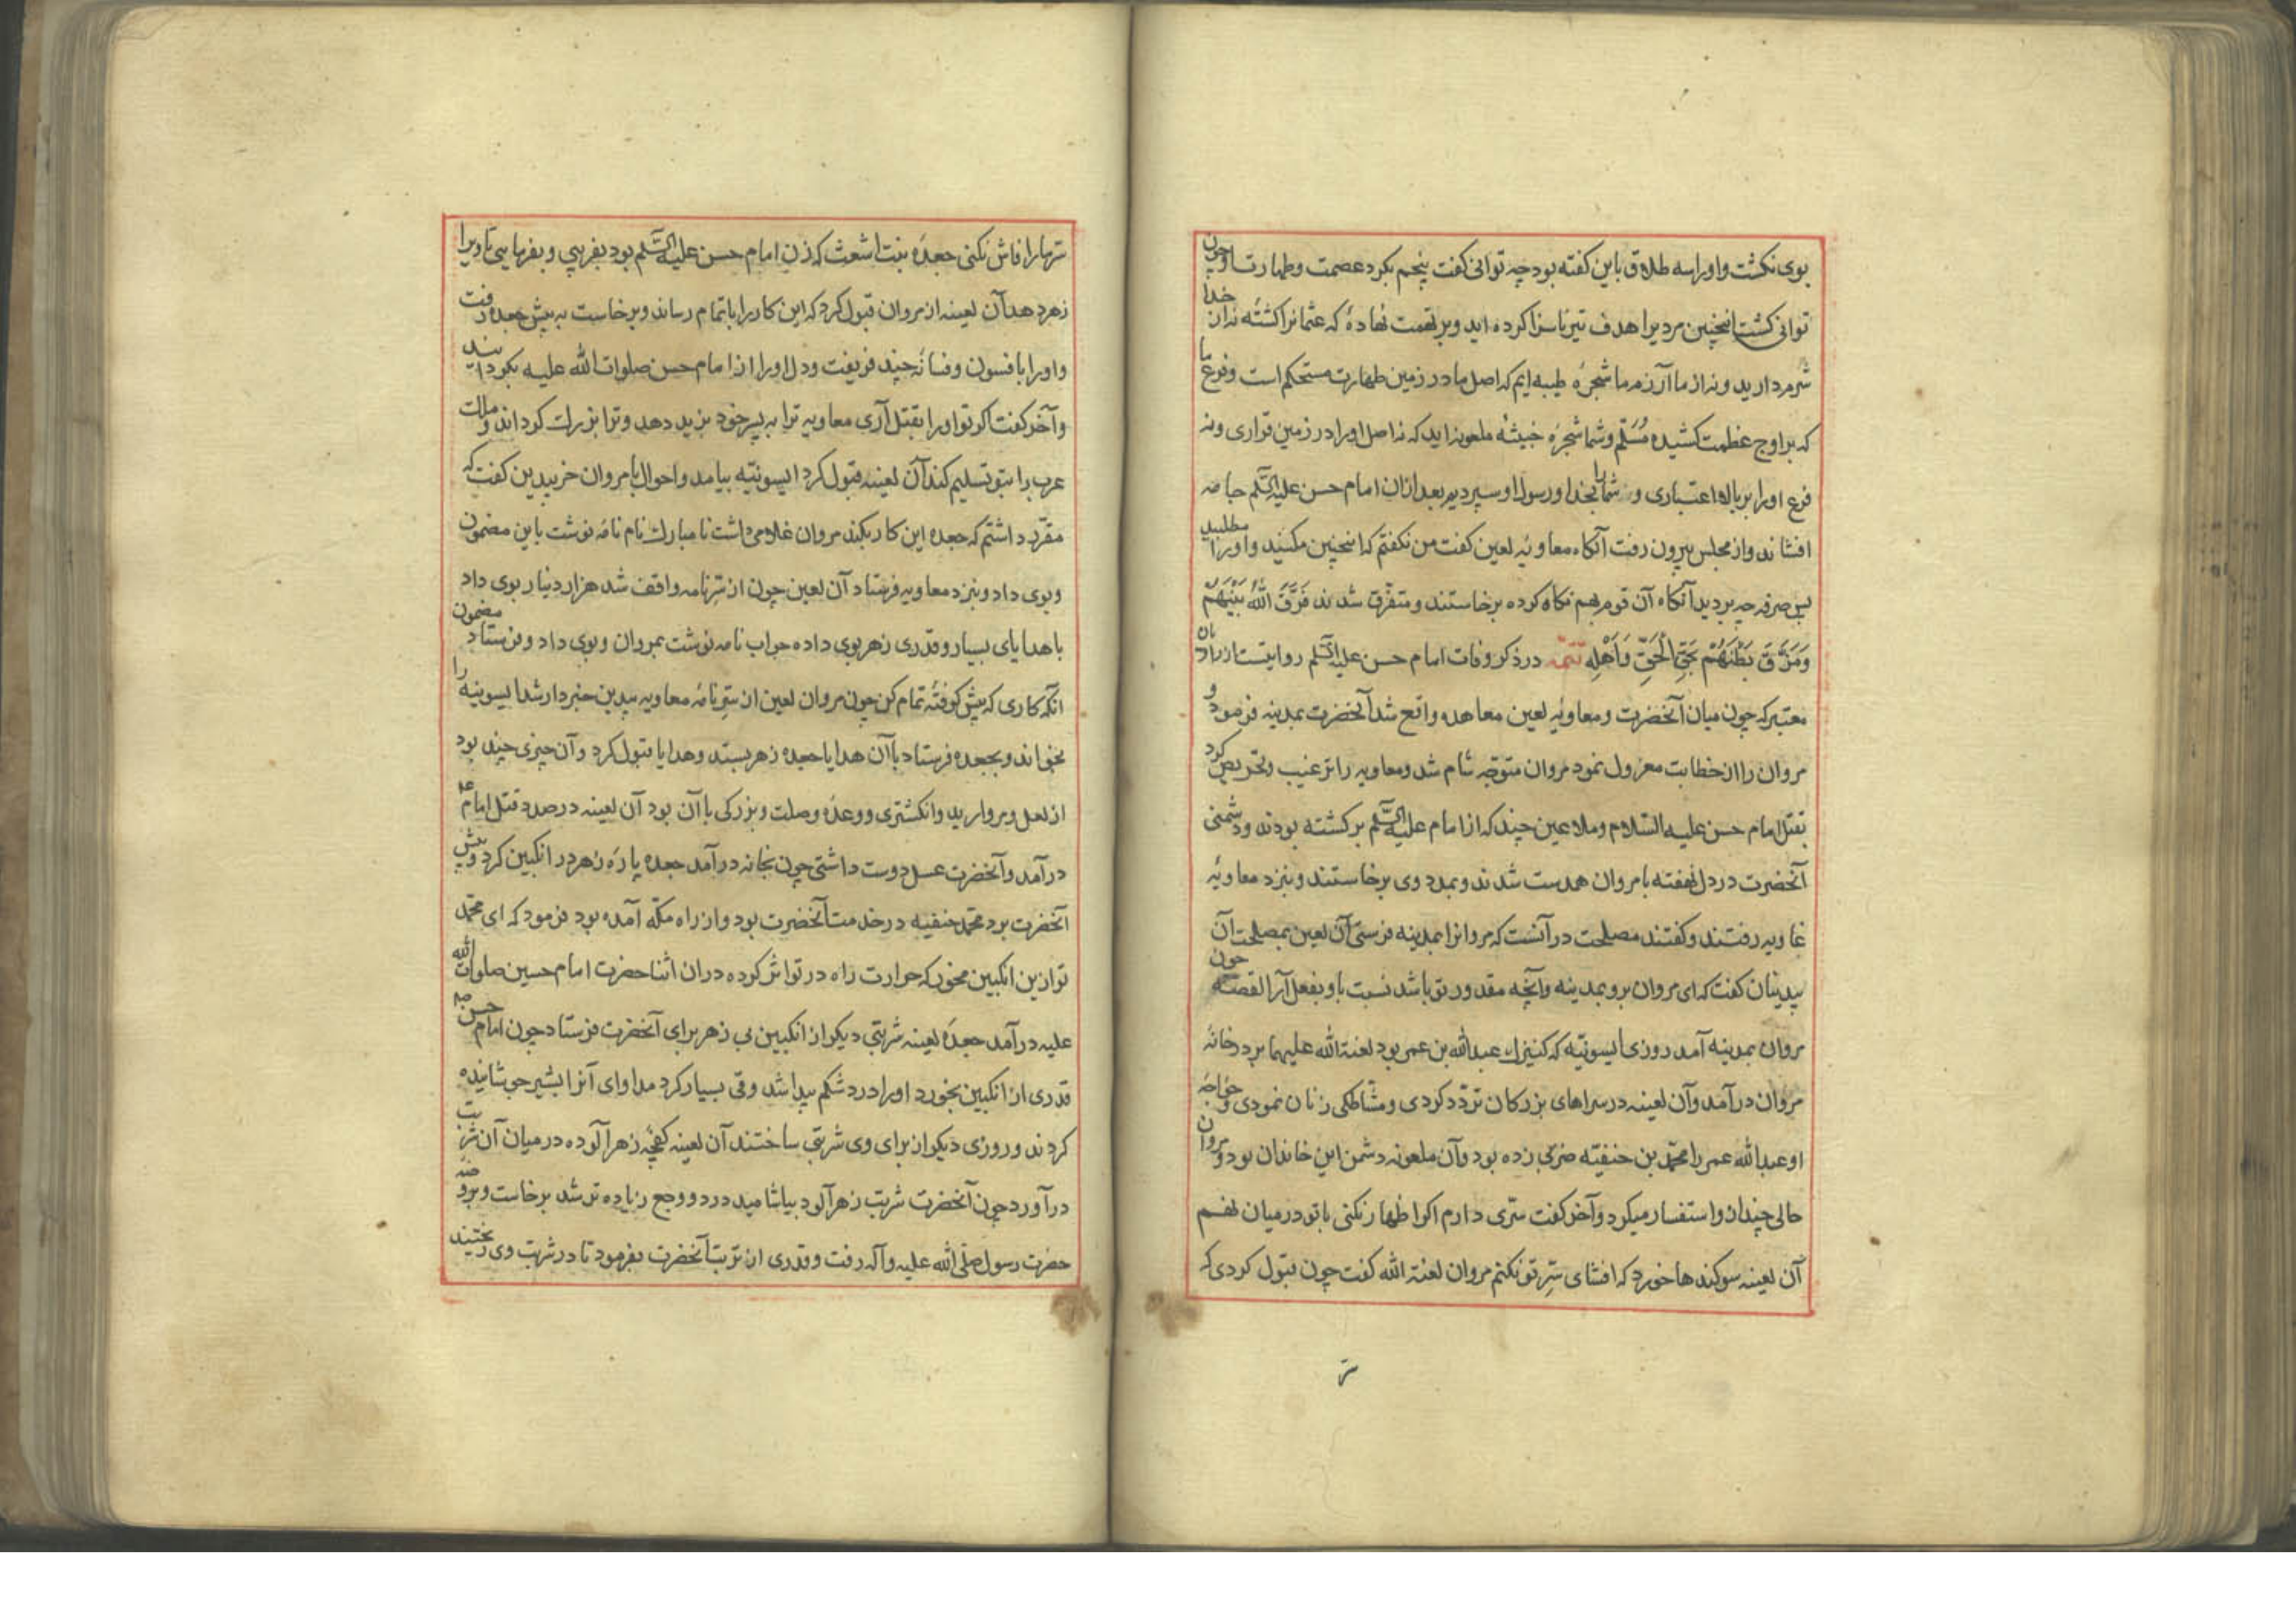 بوی نکشت و اورا سه طلاق باین کفته بود چه توانی کفت پنجم بکرد عصمت و طهارت او چون
توانی کشت اینچنین مردیرا هدف تیر ناسزا کرده اید و بر تهمت نهاده که عثمانرا کشته نه از خدا
شرم دارید و نه از ما آزرم ما شجرهٔ طیبه ایم که اصل ما در زمین طهارت مستحکم است و فرع ما
که بر اوج عظمت کشیده مسلم و شما شجرهٔ خبیثهٔ ملعونه اید که نه اصل اورا در زمین قراری و نه
فرع اورا بر بالا اعتباری و شمارا بخدا و رسول او سپردیم بعد ازان امام حسن علیه السّلم جامه
افشاند و از مجلس بیرون رفت آنکاه معاویهٔ لعین کفت من نکفتم که اینچنین مکنید و اورا مطلبید
پس صرفه چه بردید آنکاه آن قوم بهم نکاه کرده برخاستند و متفرّق شدند فَرَّقَ اللهُ بَيْنَهُمْ
وَمَزَّقَ بَطْنَهُمْ بَحَقِّ الْحَقِّ وَاَهْلِهِ تتمّه در ذکر وفات امام حسن علیه السّلم روایتست از راویان
معتبر که چون میان آنحضرت و معاویهٔ لعین معاهده واقع شد آنحضرت بمدینه فرمود و
مروان را از خطابت معزول نمود مروان متوجّه شام شد و معاویه را ترغیب و تحریص کرد
بقتل امام حسن علیه السّلام و ملاعین چند که از امام علیه السّلم برکشته بودند و دشمنی
آنحضرت در دل نهفته با مروان همدست شدند و بمدد وی برخاستند و بنزد معاویهٔ
غاویه رفتند و کفتند مصلحت در آنست که مروانرا بمدینه فرستی آن لعین بمصلحت آن
بیدینان کفت که ای مروان برو بمدینه و آنچه مقدور تو باشد نسبت باو بفعل آر القصّه چون
مروان بمدینه آمد روزی ایسونیّه که کنیزک عبدالله بن عمر بود لعنة الله علیهما بر در خانهٔ
مروان درآمد و آن لعینه در سراهای بزرکان تردّد کردی و مشّاطکی زنان نمودی و خواجهٔ
او عبدالله عمر را محمّد بن حنفیّه ضربی زده بود و آن ملعونه دشمن این خاندان بود و مروان
حالی چند ازو استفسار میکرد و آخر کفت سرّی دارم اکر اظهار نکنی با تو در میان نهم
آن لعینه سوکندها خورد که افشای سرّ تو نکنم مروان لعنة الله کفت چون قبول کردی که
سر
سرّ مارا فاش نکنی جعدهٔ بنت اشعث که زن امام حسن علیه السّلم بود بفریبی و بفرمایی تا ویرا
زهر دهد آن لعینه از مروان قبول کرد که این کار را باتمام رساند و برخاست به پیش جعده رفت
و اورا بافسون و فسانهٔ چند فریفت و دل اورا از امام حسن صلوات الله علیه بکردانید
و آخر کفت اکر تو اورا بقتل آری معاویه ترا به پسر خود یزید دهد و ترا بزرک کرداند و ملک
عرب را بتو تسلیم کند آن لعینه قبول کرد ایسونیّه بیامد و احوال بامروان خر بیدین کفت که
مقرّر داشتم که جعده این کار بکند مروان غلامی داشت نا مبارک نام نامهٔ نوشت باین مضمون
و بوی داد و بنزد معاویه فرستاد آن لعین چون از سرّ نامه واقف شد هزار دینار بوی داد
با هدایای بسیار و قدری زهر بوی داده جواب نامه نوشت بمروان و بوی داد و فرستاد مضمون
آنکه کاری که پیش کرفتهٔ تمام کن چون مروان لعین از سرّ نامهٔ معاویه بیدین خبردار شد ایسونیه را
بخواند و بجعده فرستاد با آن هدایا جعده زهر بستد و هدایا قبول کرد و آن چیزی چند بود
از لعل و مروارید و انکشتری و وعدهٔ وصلت و بزرکی با آن بود آن لعینه در صدد قتل امام عم
درآمد و آنحضرت عسل دوست داشتی چون بخانه درآمد جعده پارهٔ زهر در انکبین کرد و پیش
آنحضرت برد محمّد حنفیه در خدمت آنحضرت بود و از راه مکّه آمده بود فرمود که ای محمّد
تو ازین انکبین مخور که حرارت راه در تو اثر کرده دران اثنا حضرت امام حسین صلوات الله
علیه درآمد جعدهٔ لعینه شربتی دیکر از انکبین بی زهر برای آنحضرت فرستاد چون امام حسن عم
قدری از انکبین بخورد اورا درد شکم پیدا شد و قی بسیار کرد مداوای آنرا بشیر جوشانیده
کردند و روزی دیکر از برای وی شربتی ساختند آن لعینه کفچهٔ زهرآلوده در میان آن شربت
درآورد چون آنحضرت شربت زهرآلود بیاشامید درد و وجع زیاده تر شد برخاست و بروضهٔ
حضرت رسول صلّی الله علیه وآله رفت و قدری از تربت آنحضرت بفرمود تا در شربت وی ریختند